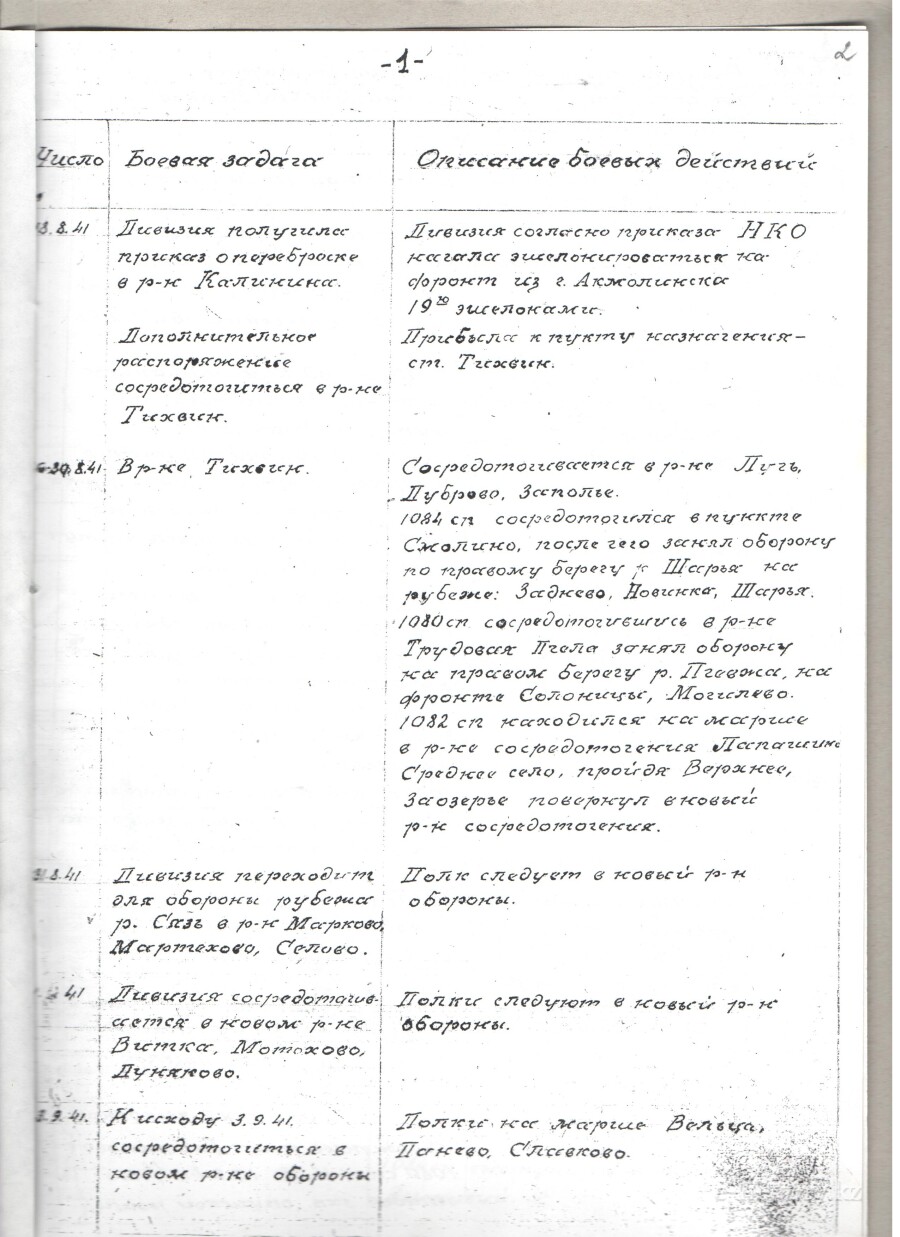 -1-
2
Число
Боевая задача
Описание боевых действий
8.41
Дивизия получила
приказ о переброске
в р-н Калинина.
Дополнительное
распоряжение
сосредоточиться в р-не
Тихвин.
Дивизия согласно приказа НКО
начала эшелонироваться на
фронт из г. Акмолинска
19го эшелонами.
Прибыла к пункту назначения-
ст. Тихвин.
8.41
В р-не Тихвин.
Сосредотачивается в р-не Лугь,
Дуброво, Заполье.
1084 сп сосредоточился в пункте
Смолино, после чего занял оборону
по правому берегу р Шарья на
рубеже: Заднево, Новинка, Шарья.
1080 сп сосредоточившись в р-не
Трудовая Пчела занял оборону
на правом берегу р. Пчевжа, на
фронте Солоницы, Могилево.
1082 сп находился на марше
в р-не сосредоточения
Среднее село, пройдя Верхнее,
Заозерье повернул в новый
р-н сосредоточения.
31.8.41
Дивизия переходит
для обороны рубежа
р. Сязь в р-н Марково,
Мартехово, Селово.
Полк следует в новый р-н
обороны.
41
Дивизия сосредотачив-
ается в новом р-не
Витка, Мотохово,
Дуняково.
Полки следуют в новый р-н
обороны.
3.9.41.
К исходу 3.9.41.
сосредоточиться в
новом р-не обороны
Полки на марше Вельца,
Панево, Славково.